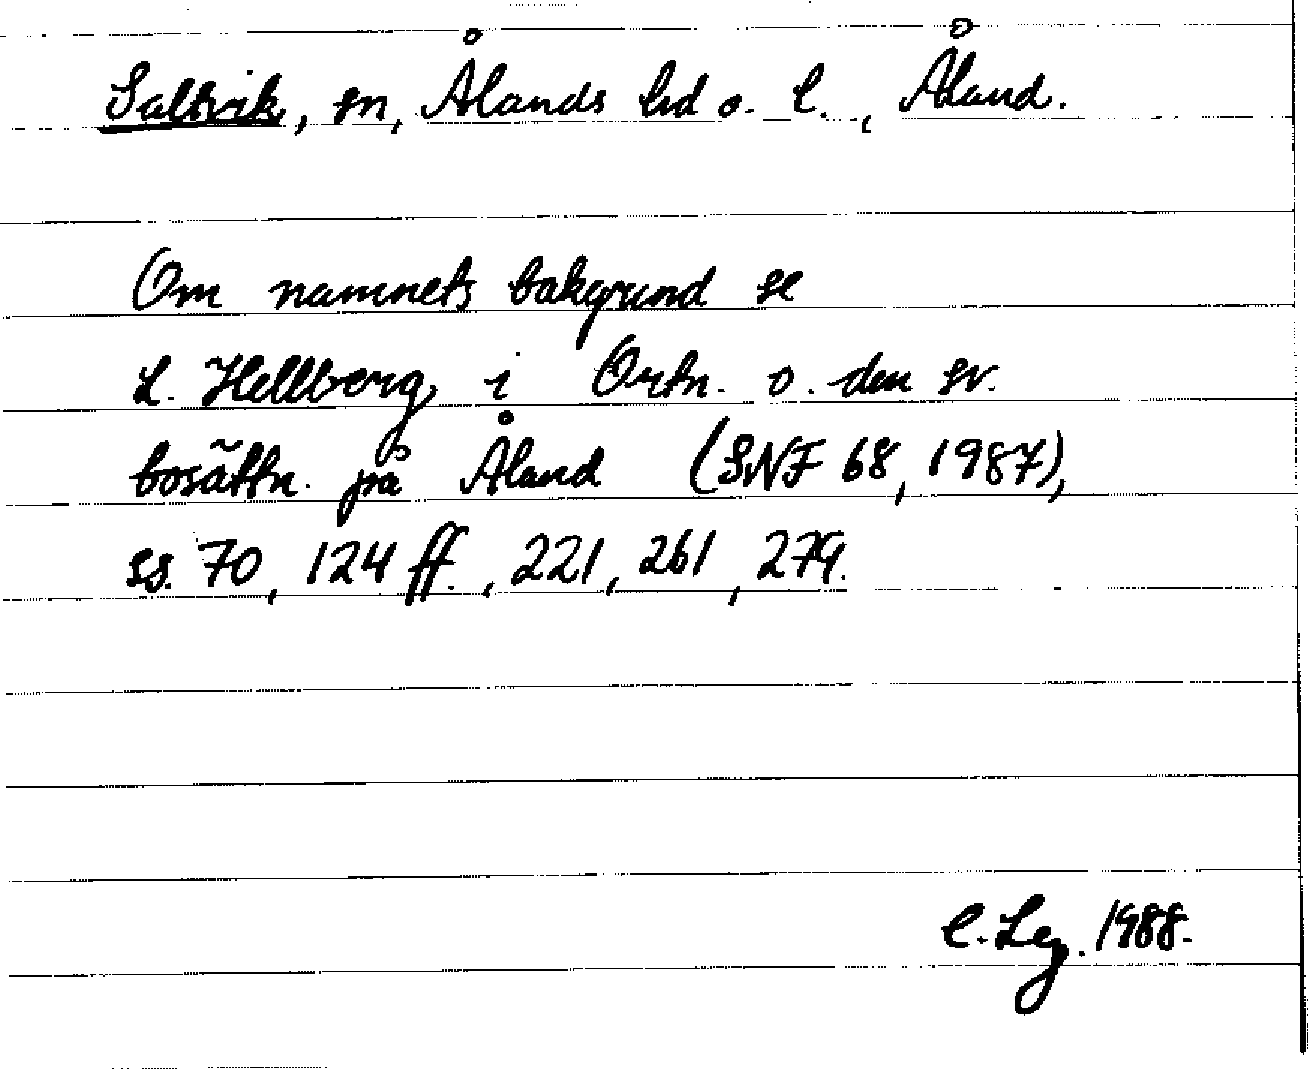 Saltvik, sn, Ålands hd o. l., Åland.
Om namnets bakgrund se
L. Hellberg i Ortn. o. den sv.
bosättn. på Åland (SNF 68, 1987),
ss. 70, 124 ff., 221, 261, 279.
1988.